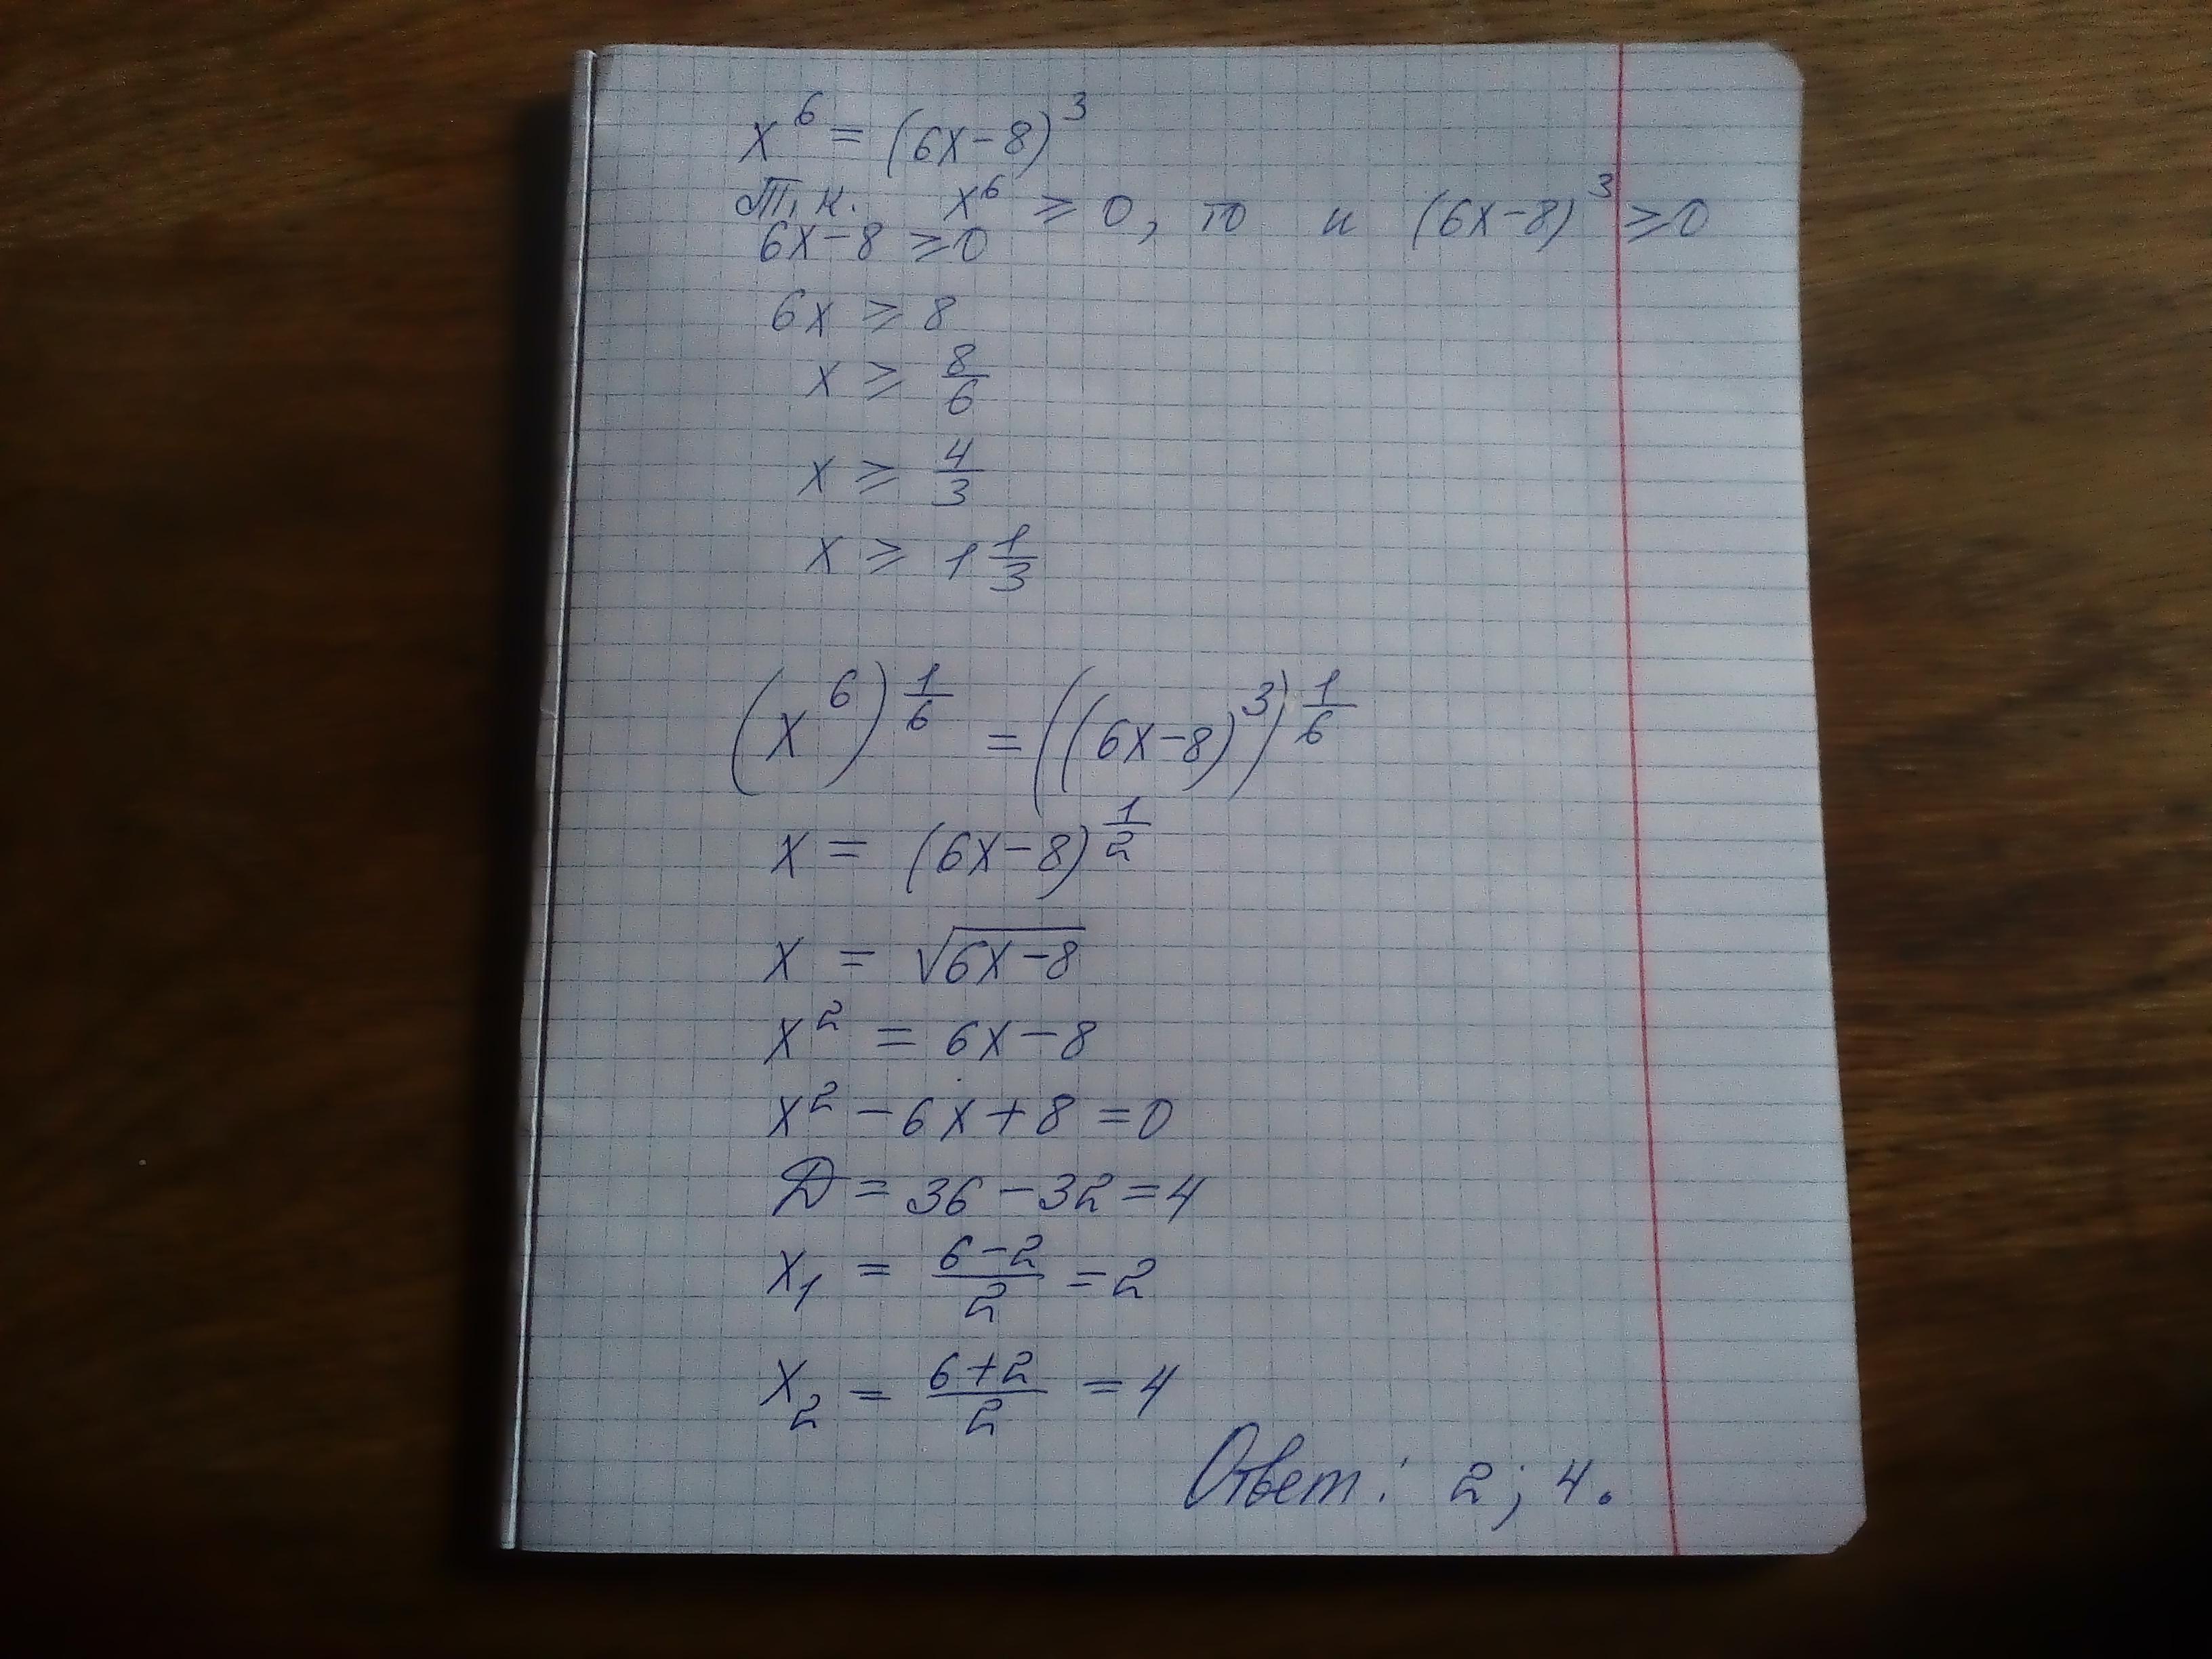 x⁶ = (6x-8)³
Т.к. x⁶ ⩾ 0, то и (6x-8)³ ⩾ 0
6x-8 ⩾ 0
6x ⩾ 8
x ⩾ 8/6
x ⩾ 4/3
x ⩾ 1 1/3
(x⁶)^(1/6) = ((6x-8)³)^(1/6)
x = (6x-8)^(1/2)
x = √(6x-8)
x² = 6x-8
x² - 6x + 8 = 0
Д = 36 - 32 = 4
x₁ = (6-2)/2 = 2
x₂ = (6+2)/2 = 4
Ответ: 2; 4.